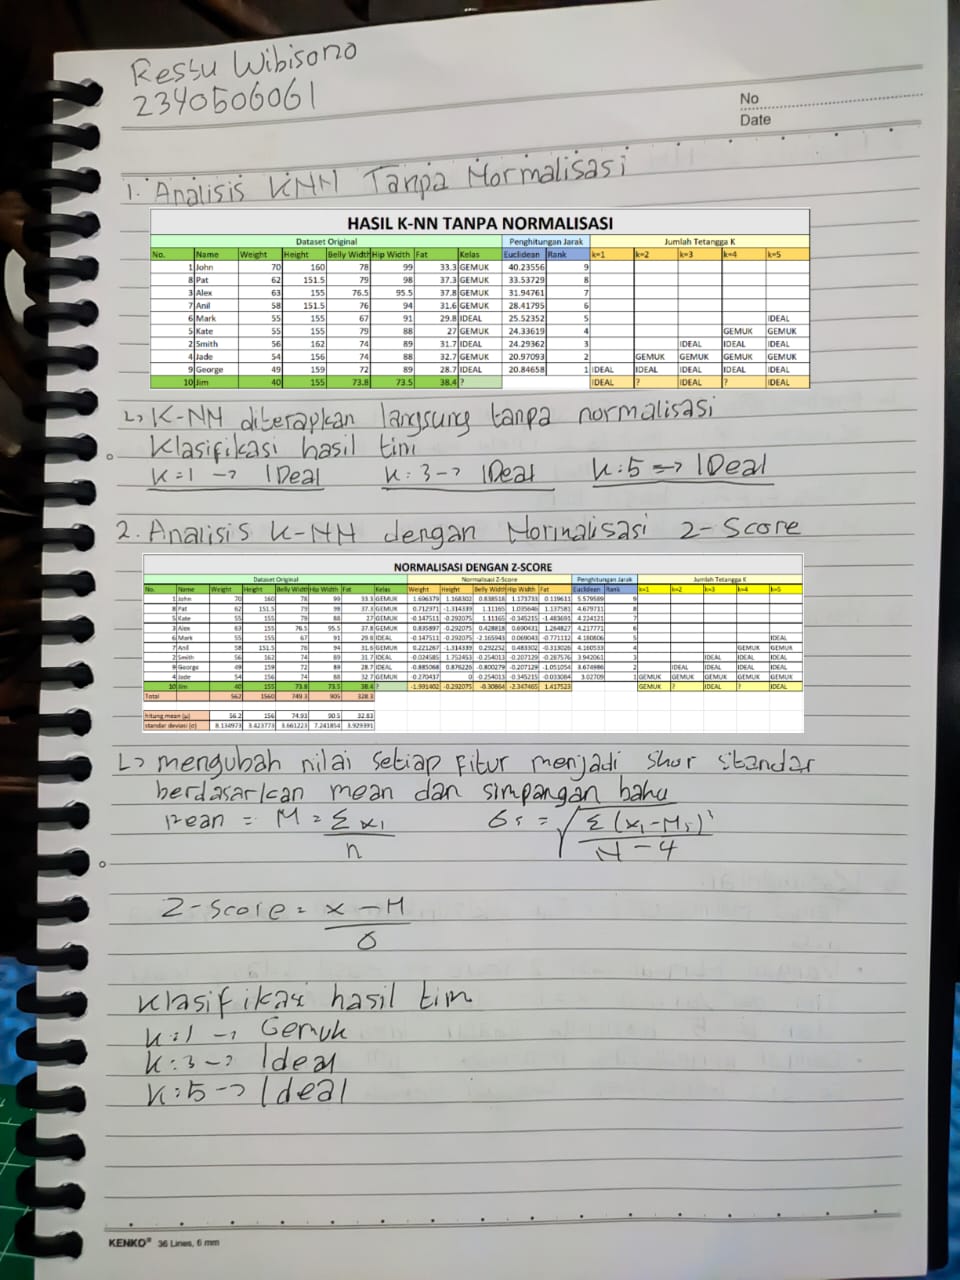 Restu Wibisono
2340506061
No
Date
1. Analisis KNN Tanpa Normalisasi
HASIL K-NN TANPA NORMALISASI
Dataset Original Penghitungan Jarak Jumlah Tetangga K
No. Name Weight Height Belly Width Hip Width Fat Kelas Euclidean Rank k=1 k=2 k=3 k=4 k=5
1 John 70 160 78 99 33.3 GEMUK 40.23556 9
8 Pat 62 151.5 79 98 37.3 GEMUK 33.53729 8
3 Alex 63 155 76.5 95.5 37.8 GEMUK 31.94761 7
7 Anil 58 151.5 76 94 31.6 GEMUK 28.41795 6
6 Mark 55 155 67 91 29.8 IDEAL 25.52352 5 IDEAL
5 Kate 55 155 79 88 27 GEMUK 24.33619 4 GEMUK GEMUK
2 Smith 56 162 74 89 31.7 IDEAL 24.29362 3 IDEAL IDEAL IDEAL
4 Jade 54 156 74 88 32.7 GEMUK 20.97093 2 GEMUK GEMUK GEMUK GEMUK
9 George 49 159 72 89 28.7 IDEAL 20.84658 1 IDEAL IDEAL IDEAL IDEAL IDEAL
10 Jim 40 155 73.8 73.5 38.4 ? IDEAL ? IDEAL ? IDEAL
↳ K-NN diterapkan langsung tanpa normalisasi
Klasifikasi hasil tim
K=1 → IDeal K: 3 → IDeal K: 5 => IDeal
2. Analisis K-NN dengan Normalisasi Z-Score
NORMALISASI DENGAN Z-SCORE
Dataset Original Normalisasi Z-Score Penghitungan Jarak Jumlah Tetangga K
No. Name Weight Height Belly Width Hip Width Fat Kelas Weight Height Belly Width Hip Width Fat Euclidean Rank k=1 k=2 k=3 k=4 k=5
1 John 70 160 78 99 33.3 GEMUK 1.696379 1.168302 0.838518 1.173733 0.119611 5.579589 9
8 Pat 62 151.5 79 98 37.3 GEMUK 0.712971 -1.314339 1.11165 1.035646 1.137581 4.679711 8
5 Kate 55 155 79 88 27 GEMUK -0.147511 -0.292075 1.11165 -0.345215 -1.483691 4.224121 7
3 Alex 63 155 76.5 95.5 37.8 GEMUK 0.835897 -0.292075 0.428818 0.690431 1.264827 4.217771 6
6 Mark 55 155 67 91 29.8 IDEAL -0.147511 -0.292075 -2.165943 0.069043 -0.771112 4.180806 5 IDEAL
7 Anil 58 151.5 76 94 31.6 GEMUK 0.221267 -1.314339 0.292252 0.483302 -0.313026 4.160533 4 GEMUK GEMUK
2 Smith 56 162 74 89 31.7 IDEAL -0.024585 1.752453 -0.254013 -0.207129 -0.287576 3.942061 3 IDEAL IDEAL IDEAL
9 George 49 159 72 89 28.7 IDEAL -0.885068 0.876226 -0.800279 -0.207129 -1.051054 3.674986 2 IDEAL IDEAL IDEAL IDEAL
4 Jade 54 156 74 88 32.7 GEMUK -0.270437 0 -0.254013 -0.345215 -0.033084 3.02709 1 GEMUK GEMUK GEMUK GEMUK GEMUK
10 Jim 40 155 73.8 73.5 38.4 ? -1.991402 -0.292075 -0.30864 -2.347465 1.417523 GEMUK ? IDEAL ? IDEAL
Total 562 1560 749.3 905 328.3
hitung mean (μ) 56.2 156 74.93 90.5 32.83
standar deviasi (σ) 8.134973 3.423773 3.661223 7.241854 3.929391
↳ mengubah nilai setiap fitur menjadi skor standar
berdasarkan mean dan simpangan baku
Mean = M = Σ x₁ / n
Z-Score = x - M / σ
Klasifikasi hasil tim
K:1 → Gemuk
K:3 → Ideal
K:5 → Ideal
KENKO® 36 Lines, 6 mm